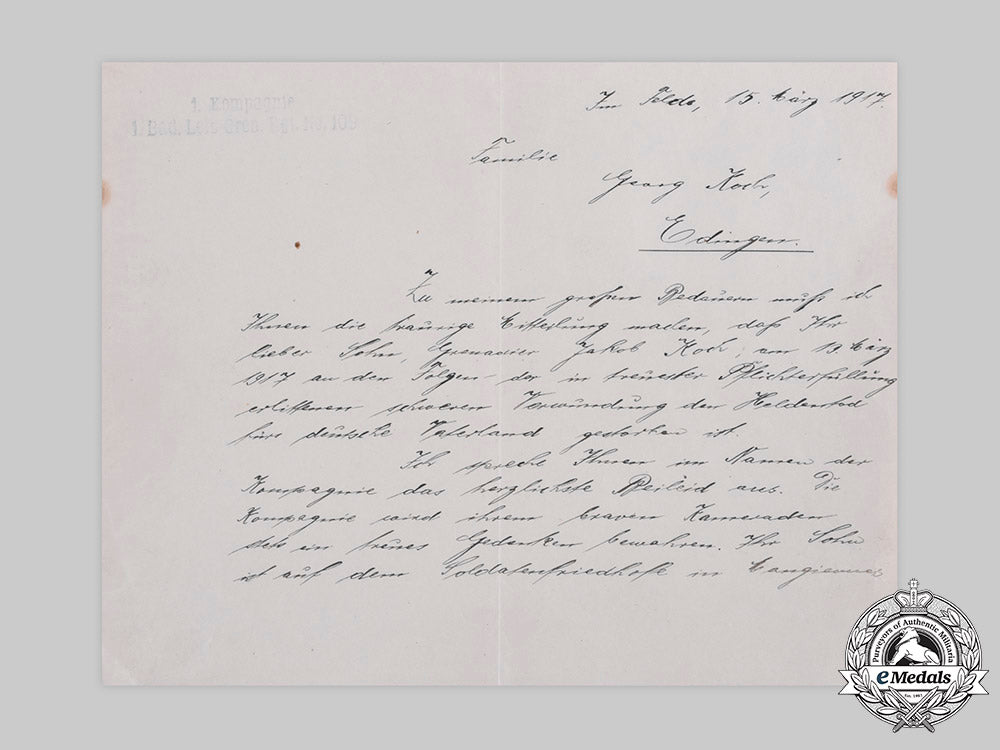 1. Kompagnie
1. Bad. Leib-Gren. Rgt. No. 109
Im Felde, 15. März 1917.
Familie
Georg Koch,
Edingen.
Zu meinem großen Bedauern muß ich
Ihnen die traurige Mitteilung machen, daß Ihr
lieber Sohn, Grenadier Jakob Koch, am 13. März
1917 an den Folgen der in treuester Pflichterfüllung
erlittenen schweren Verwundung den Heldentod
fürs deutsche Vaterland gestorben ist.
Ich spreche Ihnen im Namen der
Kompagnie das herzlichste Beileid aus. Die
Kompagnie wird ihrem braven Kameraden
stets ein treues Gedenken bewahren. Ihr Sohn
ist auf dem Soldatenfriedhofe in Mangiennes
Purveyors of Authentic Militaria
eMedals